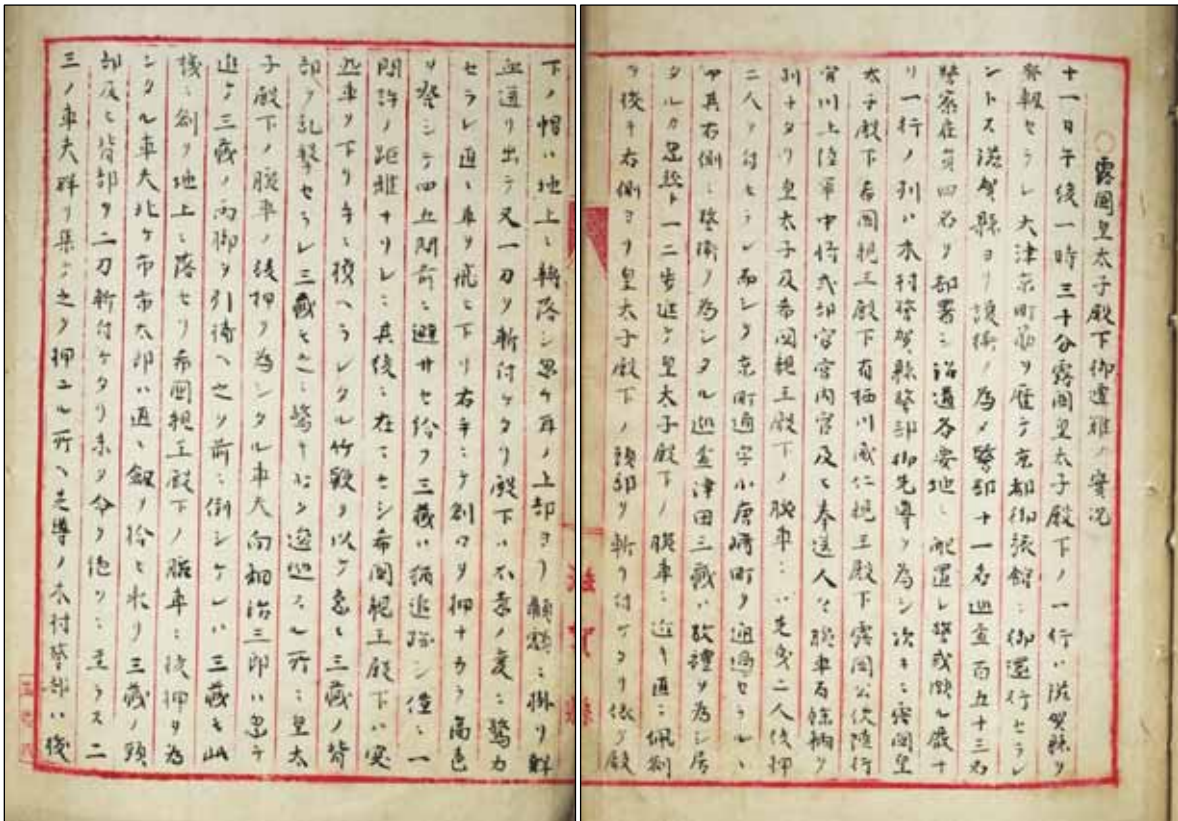 ○露国皇太子殿下御遭難ノ実況
十一日午後一時三十分露国皇太子殿下ノ一行ハ滋賀縣ヲ
発報セラレ大津京町筋ヲ歴テ京都御旅館ニ御還行セラレ
ントス滋賀縣ヨリ護衛ノ為メ警部十一名巡査百五十三名
警察在員四名ヲ部署シ沿道各要地ニ配置シ警戒頗ル厳ナ
リ一行ノ列ハ木村滋賀縣警部御先導ヲ為シ次キニ露国皇
太子殿下希国親王殿下有栖川威仁親王殿下露国公使陸行
官川上陸軍中将式部官宮内官及ヒ奉送人等腕車百餘輌ノ
列ナタリ皇太子及希国親王殿下ノ腕車ニハ先曳二人後押
二人ヲ付セラレ而シテ京町通字小唐崎町ヲ通過セラルヽ
ヤ其右側ニ警衛ヲ為シタル巡査津田三蔵ハ敬禮ヲ為シ居
タルカ忽然ト一二歩進ケ皇太子殿下ノ腕車ニ近キ直ニ佩剣
ヲ後キ右側ヨリ皇太子殿下ノ頭部ヲ斬リ付ケタリ依テ殿
下ノ帽ハ地上ニ轉落シ忽チ耳ノ上部ヨリ顔額ニ掛リ鮮
血迸リ出ラ又一刀ヲ斬付ケタリ殿下ハ不意ノ変ニ驚カ
セラレ直ニ車ヲ飛ヒ下リ右手ニテ創口ヲ押ナカラ高声
ヲ発シテ四五間前ニ避サセ給フ三蔵ハ猶追跡シ僅ニ一
間許ノ距離ナリシニ其後ニ在ニセシ希国親王殿下ハ突
然車ヲ下リ手ニ携ヘラレタル竹鞭ヲ以テ急ニ三蔵ノ背
部ヲ乱撃セラレ三蔵モ之ニ驚キ少シク逡巡スル所ニ皇太
子殿下ノ腕車ノ後押ヲ為シタル車夫向畑治三郎ハ忽チ
進テ三蔵ノ両脚ヲ引倚ヘ之ヲ前ニ倒シケレハ三蔵モ此
機ニ剣ヲ地上ニ落セリ希国親王殿下ノ腕車ニ後押ヲ為
シタル車夫北ケ市市太郎ハ直ニ剣ヲ拾ヒ取リ三蔵ノ頸
部及ヒ背部ヲ二刀斬付ケタリ未タ命ヲ絶ツニ至ラス二
三ノ車夫群リ集テ之ヲ押ユル所ヘ先導ノ木村警部ハ後